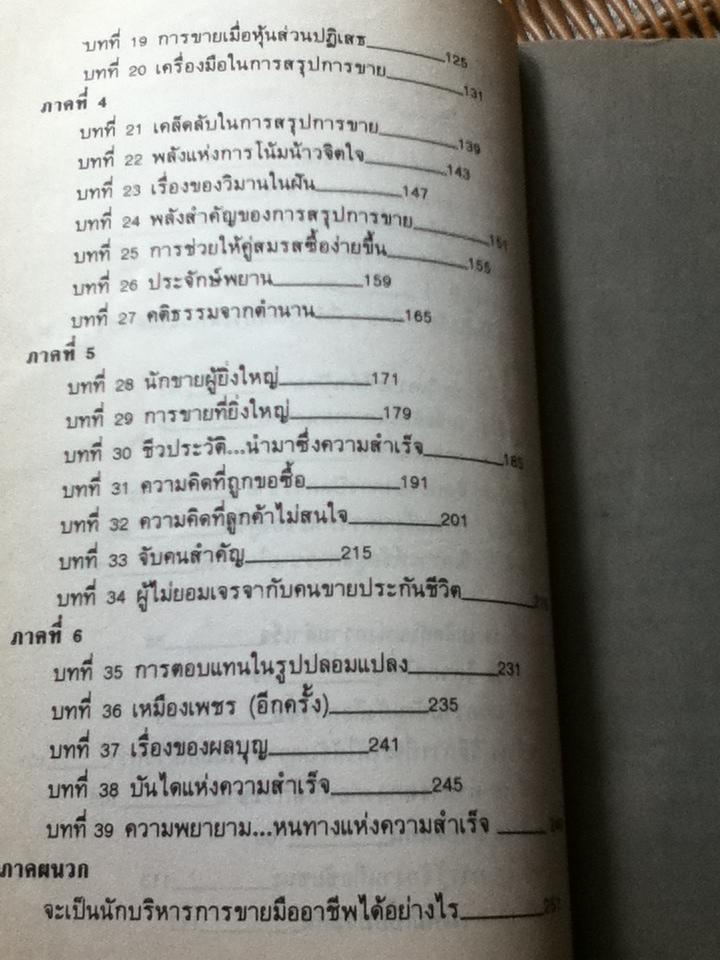 บทที่ 19 การขายเมื่อหุ้นส่วนปฏิเสธ 125
บทที่ 20 เครื่องมือในการสรุปการขาย 131
ภาคที่ 4
บทที่ 21 เคล็ดลับในการสรุปการขาย 139
บทที่ 22 พลังแห่งการโน้มน้าวจิตใจ 143
บทที่ 23 เรื่องของวิมานในฝัน 147
บทที่ 24 พลังสำคัญของการสรุปการขาย 151
บทที่ 25 การช่วยให้คู่สมรสซื้อง่ายขึ้น 155
บทที่ 26 ประจักษ์พยาน 159
บทที่ 27 คติธรรมจากตำนาน 165
ภาคที่ 5
บทที่ 28 นักขายผู้ยิ่งใหญ่ 171
บทที่ 29 การขายที่ยิ่งใหญ่ 179
บทที่ 30 ชีวประวัติ...นำมาซึ่งความสำเร็จ 185
บทที่ 31 ความคิดที่ถูกขอซื้อ 191
บทที่ 32 ความคิดที่ลูกค้าไม่สนใจ 201
บทที่ 33 จับคนสำคัญ 215
บทที่ 34 ผู้ไม่ยอมเจรจากับคนขายประกันชีวิต
ภาคที่ 6
บทที่ 35 การตอบแทนในรูปปลอมแปลง 231
บทที่ 36 เหมืองเพชร (อีกครั้ง) 235
บทที่ 37 เรื่องของผลบุญ 241
บทที่ 38 บันไดแห่งความสำเร็จ 245
บทที่ 39 ความพยายาม...หนทางแห่งความสำเร็จ
ภาคผนวก
จะเป็นนักบริหารการขายมืออาชีพได้อย่างไร